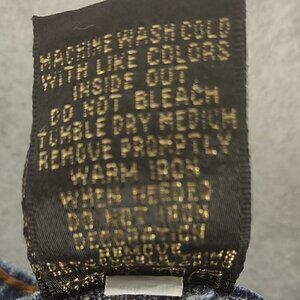 MACHINE WASH COLD
WITH LIKE COLORS
INSIDE OUT
DO NOT BLEACH
TUMBLE DRY MEDIUM
REMOVE PROMPTLY
WARM IRON
WHEN NEEDED
DO NOT IRON
DECORATION